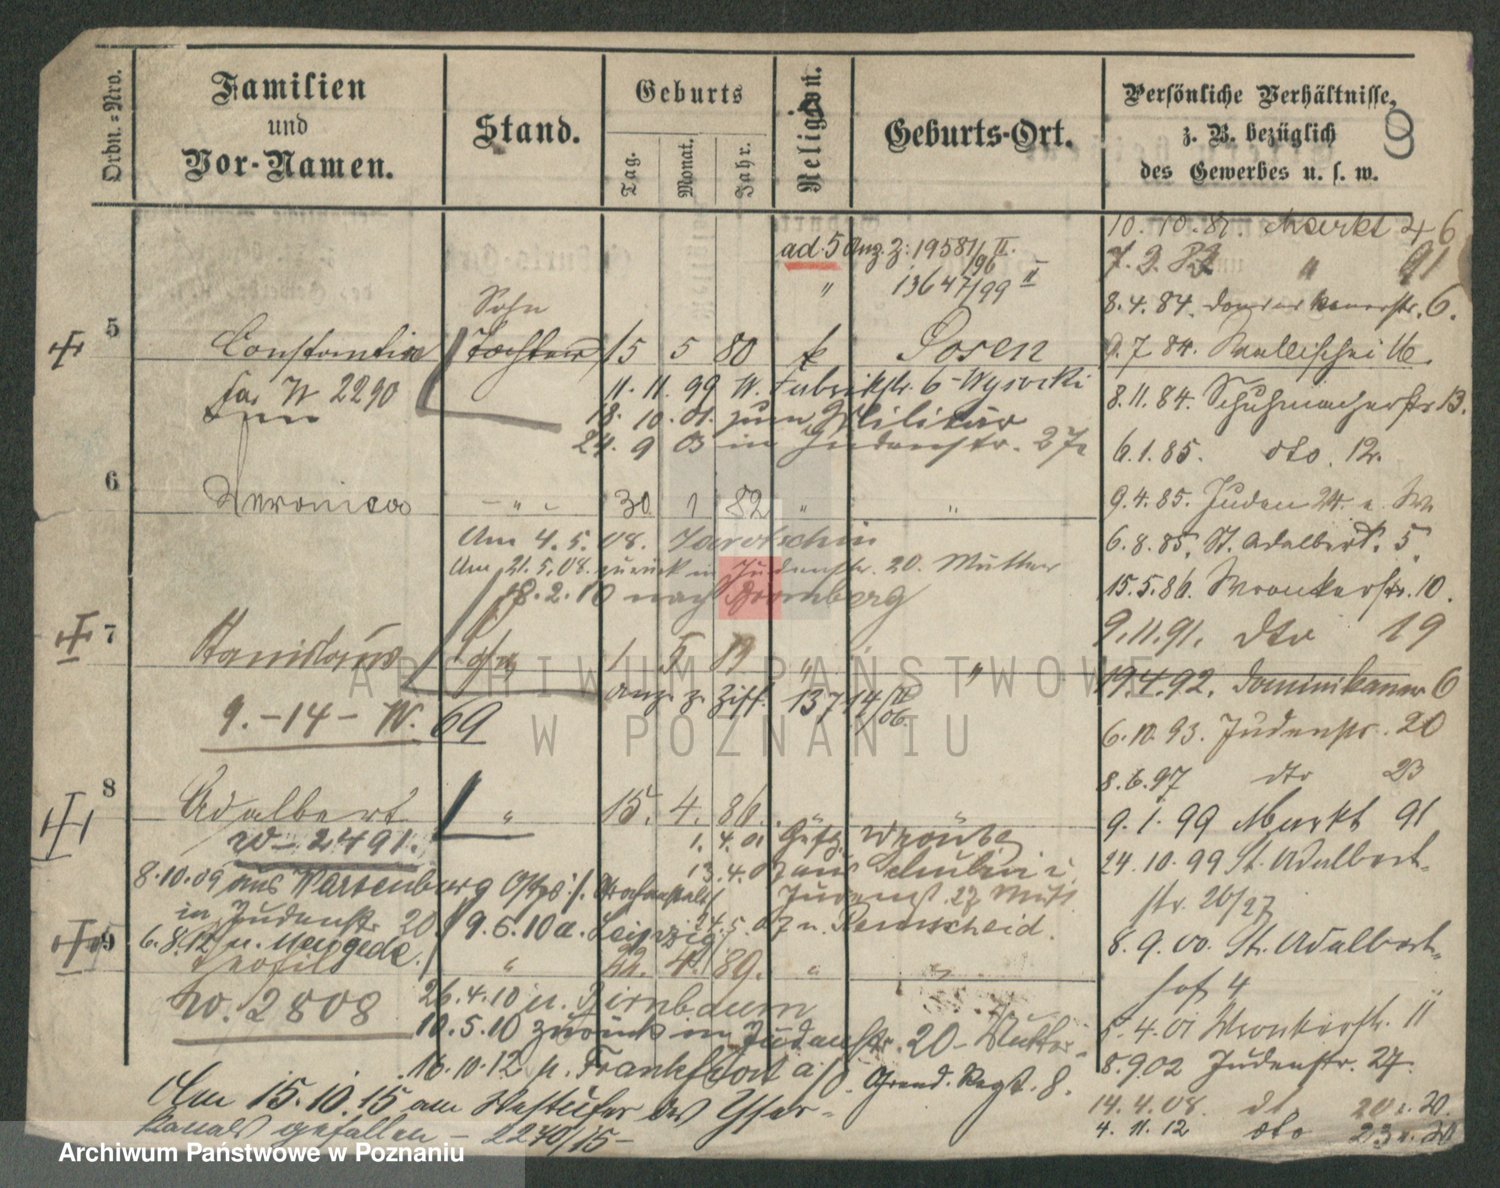 Ordn.=Nro.
Familien
und
Vor-Namen.
Stand.
Geburts
Tag.
Monat.
Jahr.
Religion.
Geburts-Ort.
Persönliche Verhältnisse,
z. B. bezüglich
des Gewerbes u. s. w.
9
ad. 5 Anz. z: 19581/96 II.
" 13647/99 II
5
Sohn
Constantin Tochter 15 5 80 k Posen
W 2290
11. 11. 99 W. Fabrikstr. 6 - Wysocki
18. 10. 01. zum Militär
24. 9 03 in Judenstr. 27
6
Veronica " 30 1 82 " "
Am 4. 5. 08. Jarotschin
Am 21. 5. 08. zurück in Judenstr. 20. Mutter
18. 2. 10 nach Bromberg
7
Stanislaus Sohn 1 5 " "
Anz. z. Ziff. 13714/06 II
9. - 14 - W. 69
8
Adalbert " 15. 4. 86. "
W - 2491.
1. 4. 01
13. 4. 07 aus
8. 10. 09 aus Wartenburg Ostpr. /. Strafanstalt /
Judenst. 27 Mutt
in Judenstr. 20. 9. 6. 10 a. Leipzig
24. 5. 07 n. Remscheid.
6. 8. 12 n.
9
Teofil " 22. 4. 89. " "
W. 2808
26. 4. 10 n. Birnbaum
10. 5. 10 zurück in Judenstr. 20 - Mutter -
16. 10. 12 n. Frankfurt a/O. Grend. Regt. 8.
Am 15. 10. 15 am Westufer des Yser-
kanals gefallen - 2240/15 -
10. 10. 81. Markt 46
7. 9. 83 " 91
8. 4. 84. 6.
9. 7 84. Wallischei 16.
8. 11. 84. Schuhmacherstr 13.
6. 1. 85. dto. 12.
9. 4. 85. Juden 24.
6. 8. 85. St. Adalbert. 5.
15. 5. 86. Wronkerstr. 10.
9. 11. 91. dto 19
19. 4. 92. Dominikaner 6
6. 10. 93. Judenstr. 20
8. 6. 97 dto 23
9. 1. 99 Markt 91
24. 10. 99 St. Adalbert-
str. 26/27
8. 9. 00. St. Adalbert-
hof 4
5. 4. 01 Wronkerstr. 11
8. 9 02 Judenstr. 27.
14. 4. 08. dt 20
4. 11. 12 dto 23
ARCHIWUM PAŃSTWOWE
W POZNANIU
Archiwum Państwowe w Poznaniu